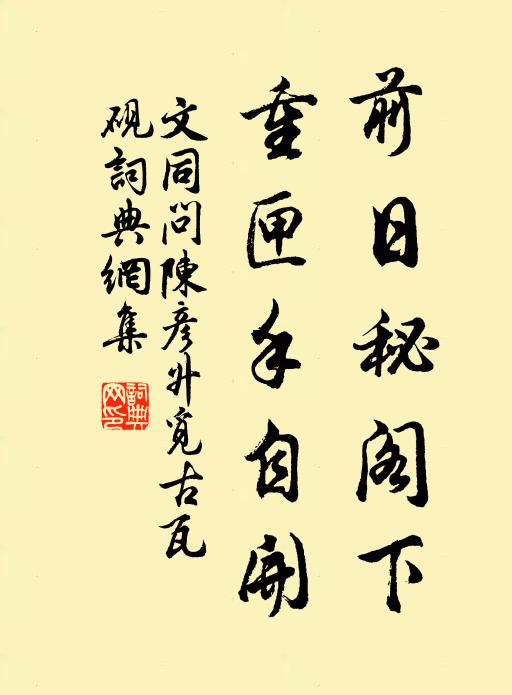 前日秘阁下
重匣手自開
文同問陳彦升覓古瓦
硯詞典網集
詞典網印